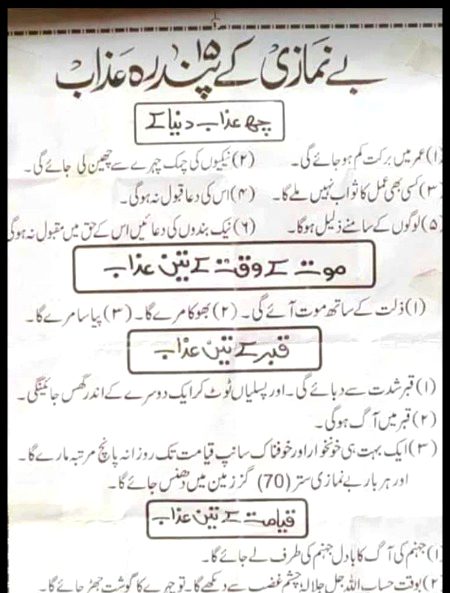 بے نمازی کے ۱۵ پندرہ عذاب
چھ عذاب دنیا کے
(۱) عمر میں برکت کم ہو جائے گی۔ (۲) نیکیوں کی چمک چہرے سے چھین لی جائے گی۔
(۳) کسی بھی عمل کا ثواب نہیں ملے گا۔ (۴) اس کی دعا قبول نہ ہوگی۔
(۵) لوگوں کے سامنے ذلیل ہوگا۔ (۶) نیک بندوں کی دعائیں اس کے حق میں مقبول نہ ہوگی
موت کے وقت کے تین عذاب
(۱) ذلت کے ساتھ موت آئے گی۔ (۲) بھوکا مرے گا۔ (۳) پیاسا مرے گا۔
قبر کے تین عذاب
(۱) قبر شدت سے دبائے گی۔ اور پسلیاں ٹوٹ کر ایک دوسرے کے اندر گھس جائینگی۔
(۲) قبر میں آگ ہوگی۔
(۳) ایک بہت ہی خونخوار اور خوفناک سانپ قیامت تک روزانہ پانچ مرتبہ مارے گا۔
اور ہر بار بے نمازی ستر (70) گز زمین میں دھنس جائے گا۔
قیامت کے تین عذاب
(۱) جہنم کی آگ کا بادل جہنم کی طرف لے جائے گا۔
(۲) بوقت حساب اللہ جل جلالہ چشم غضب سے دیکھے گا۔ تو چہرے کا گوشت جھڑ جائے گا۔